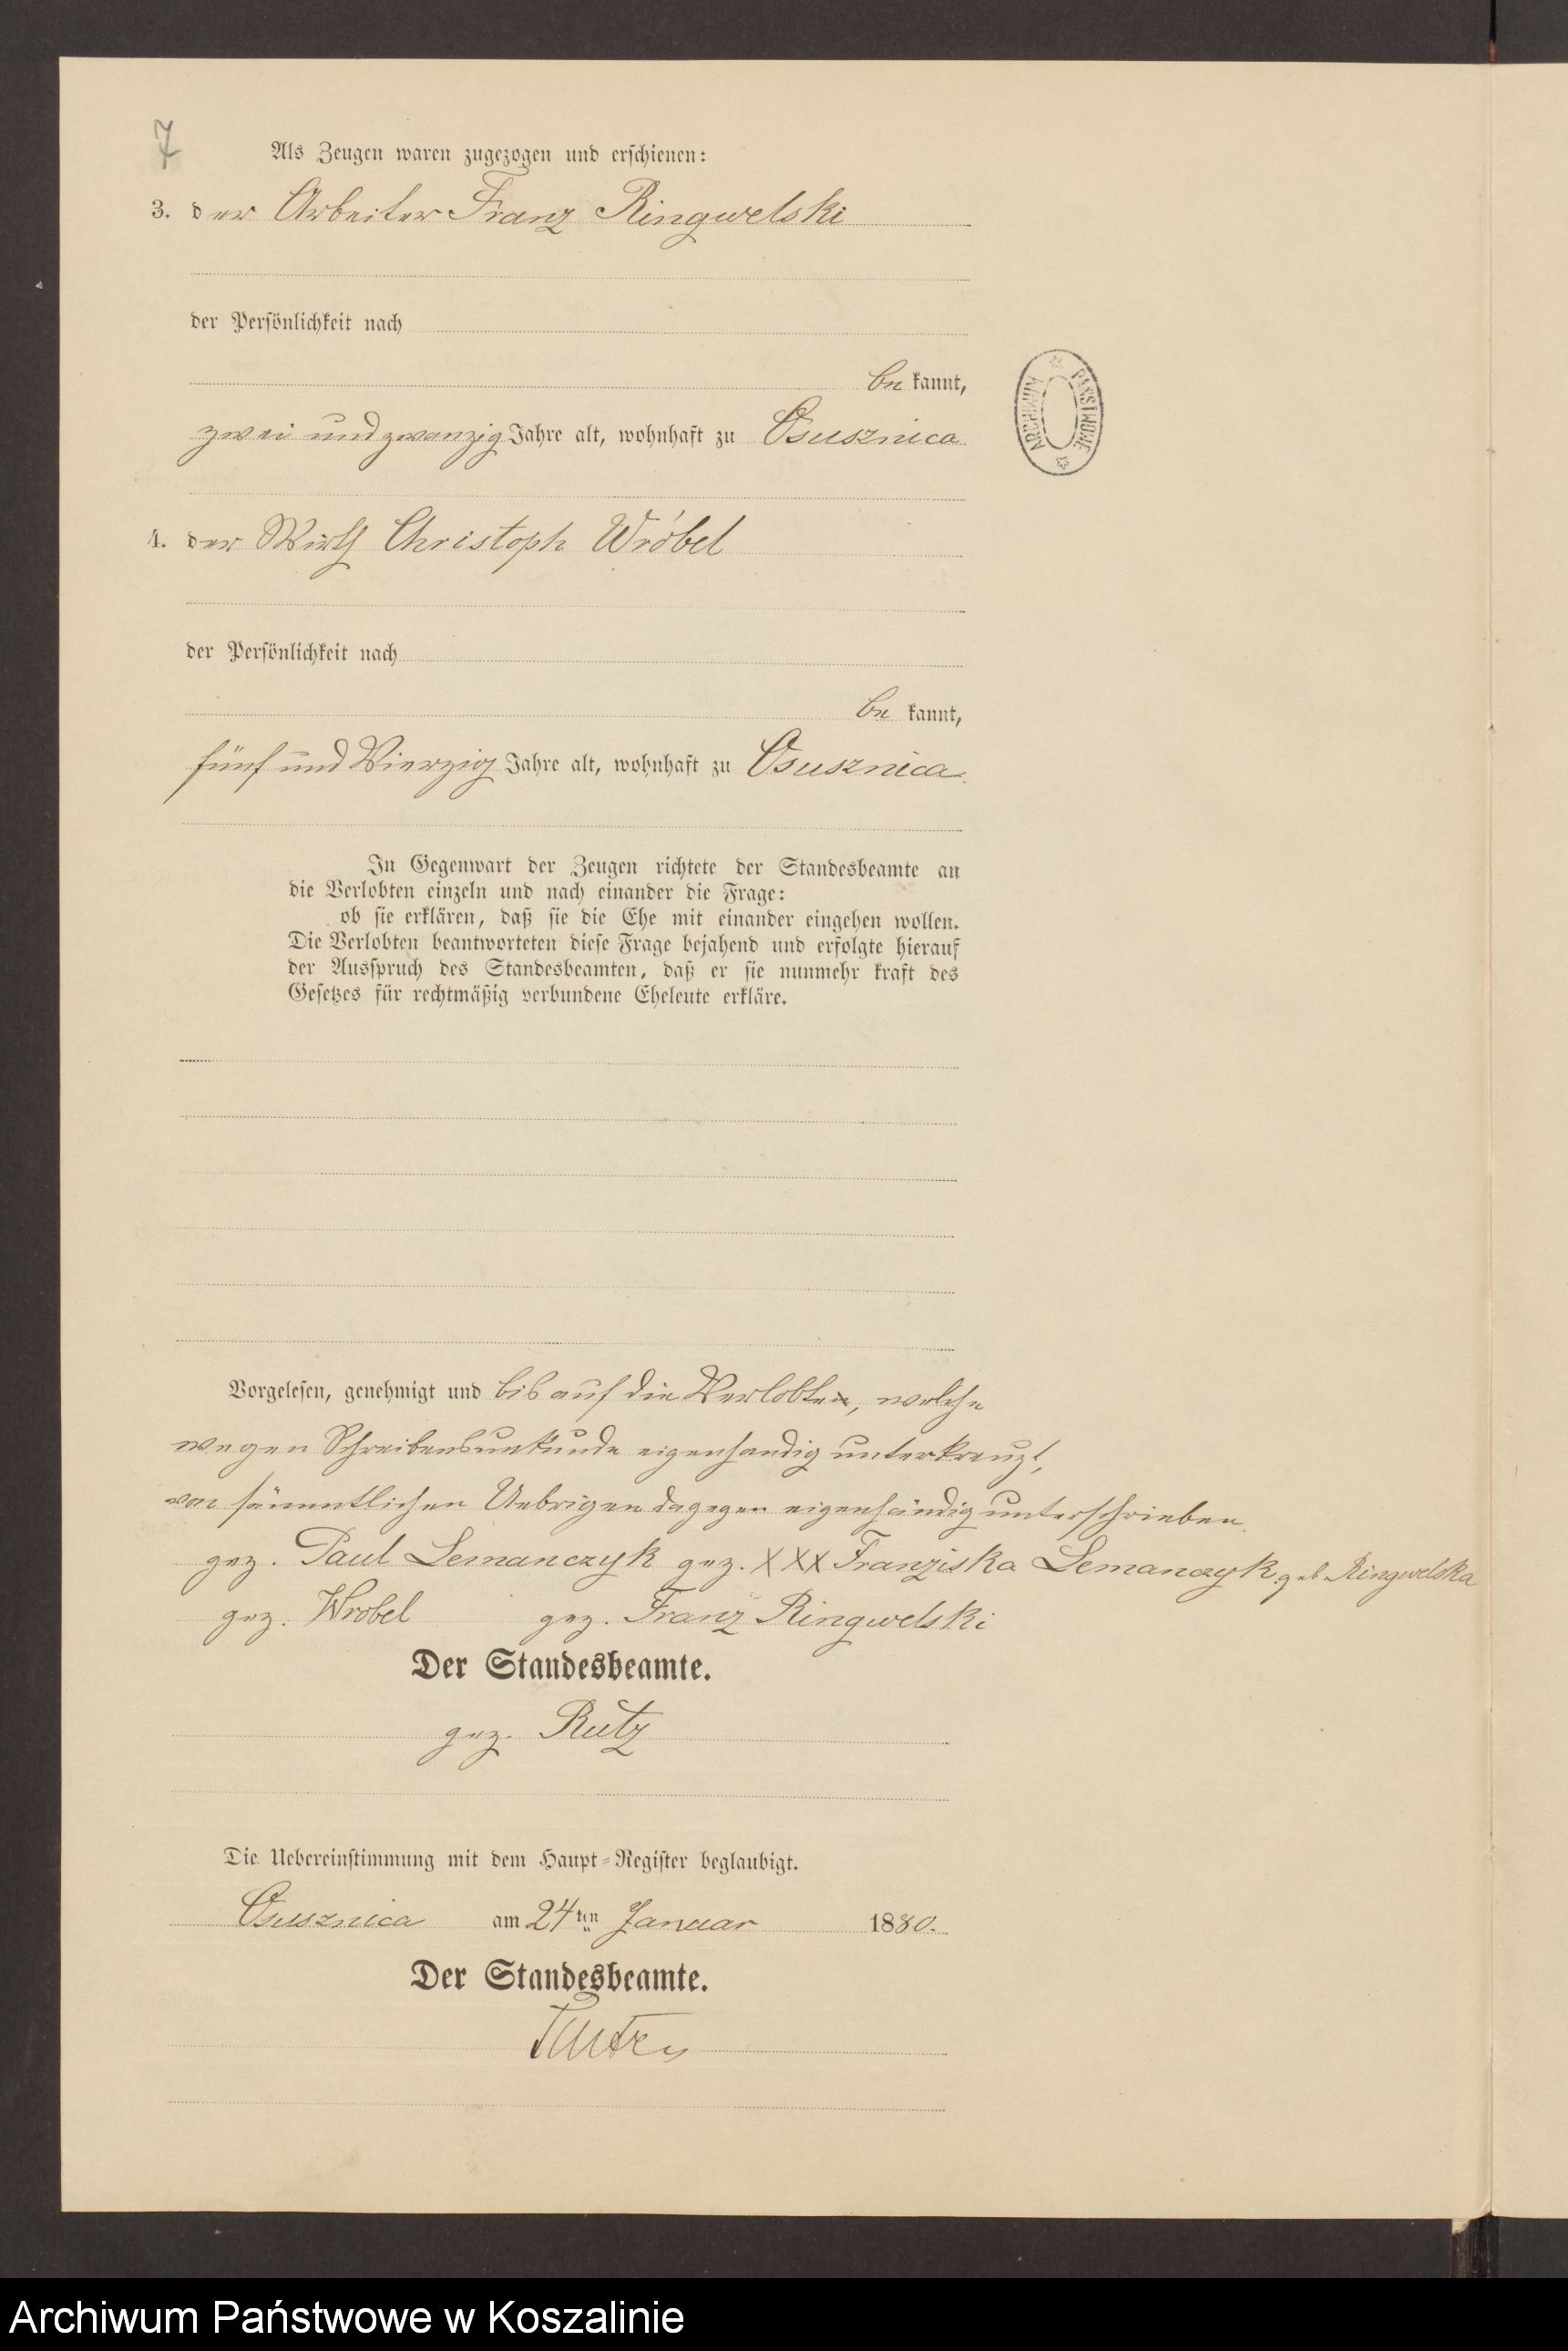 7
Als Zeugen waren zugezogen und erschienen:
3. der Arbeiter Franz Ringwelski
der Persönlichkeit nach
be kannt,
zwei und zwanzig Jahre alt, wohnhaft zu Osusznica
4. der Wirth Christoph Wróbel
der Persönlichkeit nach
be kannt,
fünf und Vierzig Jahre alt, wohnhaft zu Osusznica.
In Gegenwart der Zeugen richtete der Standesbeamte an
die Verlobten einzeln und nach einander die Frage:
ob sie erklären, daß sie die Ehe mit einander eingehen wollen.
Die Verlobten beantworteten diese Frage bejahend und erfolgte hierauf
der Ausspruch des Standesbeamten, daß er sie nunmehr kraft des
Gesetzes für rechtmäßig verbundene Eheleute erkläre.
Vorgelesen, genehmigt und bis auf die Verlobte, welche
wegen Schreibensunkunde eigenhandig unterkreuzt,
von sämmtlichen Uebrigen dagegen eigenhändig unterschrieben.
gez. Paul Lemanczyk gez. XXX Franziska Lemanczyk geb Ringwelska
gez. Wrobel gez. Franz Ringwelski
Der Standesbeamte.
gez. Rutz
Die Uebereinstimmung mit dem Haupt-Register beglaubigt.
Osusznica am 24ten Januar 1880.
Der Standesbeamte.
ARCHIWUM PAŃSTWOWE
Archiwum Państwowe w Koszalinie